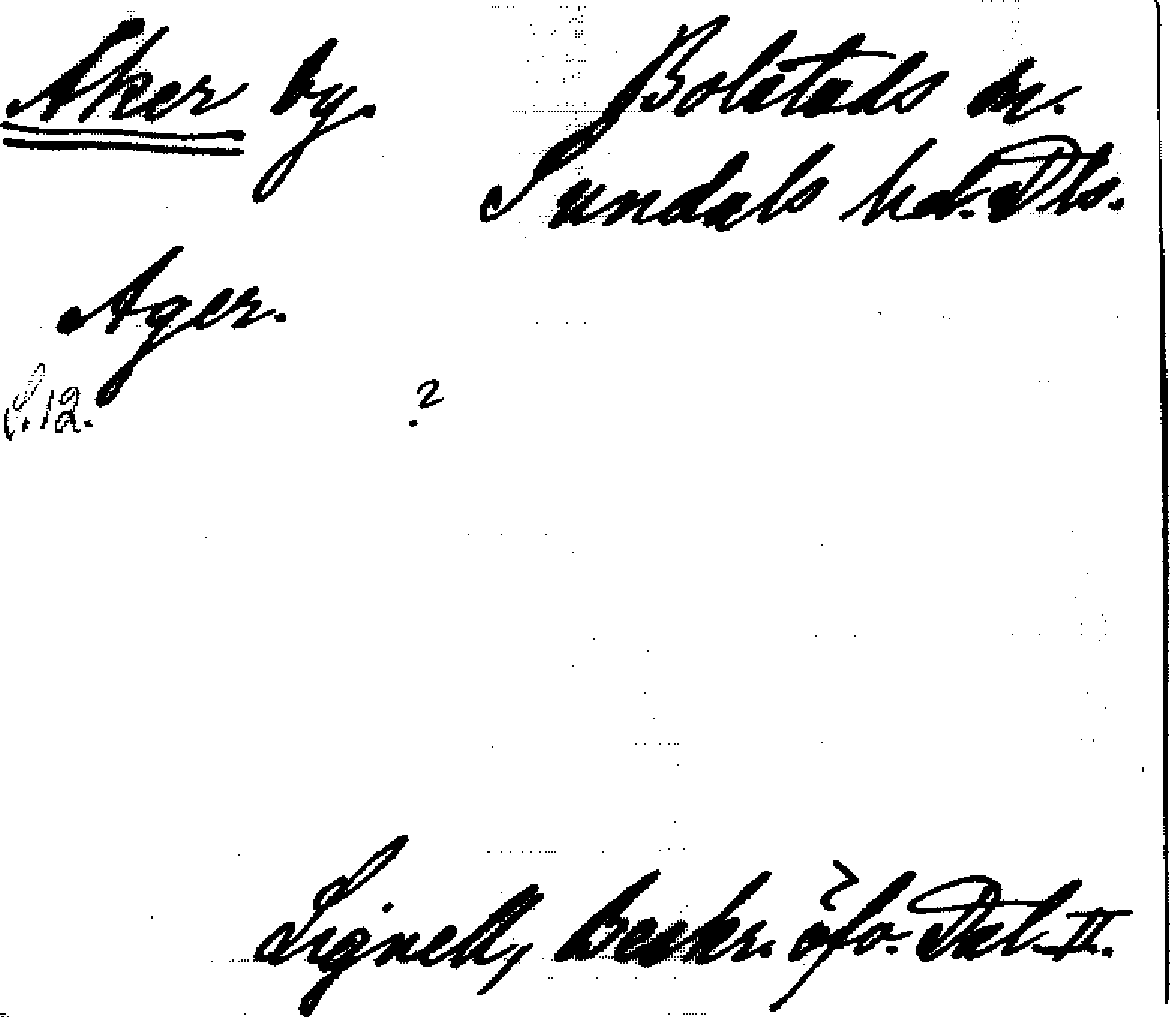 Åker by. Bolstads sn.
Sundals hd. Dls.
Ager.
S. 12. ?
Lignell, Beskr. öfv. Dal. II.